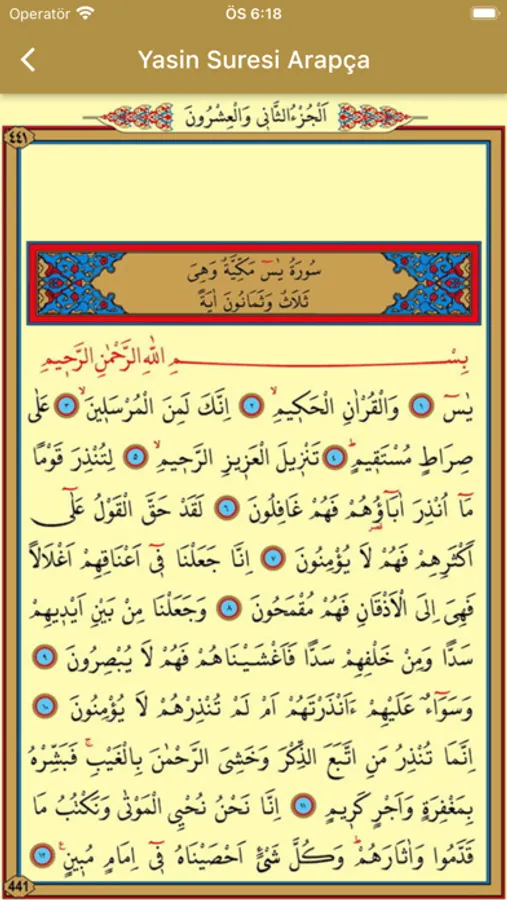 Operatör ÖS 6:18
Yasin Suresi Arapça
اَلْجُزْءُ الثَّانِي وَالْعِشْرُونَ
٤٤١
سُورَةُ يٰسٓ مَكِّيَّةٌ وَهِيَ
ثَلَاثٌ وَثَمَانُونَ اٰيَةً
بِسْمِ اللّٰهِ الرَّحْمٰنِ الرَّح۪يمِ
يٰسٓ ١ وَالْقُرْاٰنِ الْحَك۪يمِۙ ٢ اِنَّكَ لَمِنَ الْمُرْسَل۪ينَۙ ٣ عَلٰى
صِرَاطٍ مُسْتَق۪يمٍۜ ٤ تَنْز۪يلَ الْعَز۪يزِ الرَّح۪يمِۙ ٥ لِتُنْذِرَ قَوْمًا
مَٓا اُنْذِرَ اٰبَٓاؤُ۬هُمْ فَهُمْ غَافِلُونَ ٦ لَقَدْ حَقَّ الْقَوْلُ عَلٰٓى
اَكْثَرِهِمْ فَهُمْ لَا يُؤْمِنُونَ ٧ اِنَّا جَعَلْنَا ف۪ٓي اَعْنَاقِهِمْ اَغْلَالًا
فَهِيَ اِلَى الْاَذْقَانِ فَهُمْ مُقْمَحُونَ ٨ وَجَعَلْنَا مِنْ بَيْنِ اَيْد۪يهِمْ
سَدًّا وَمِنْ خَلْفِهِمْ سَدًّا فَاَغْشَيْنَاهُمْ فَهُمْ لَا يُبْصِرُونَ ٩
وَسَوَٓاءٌ عَلَيْهِمْ ءَاَنْذَرْتَهُمْ اَمْ لَمْ تُنْذِرْهُمْ لَا يُؤْمِنُونَ ١٠
اِنَّمَا تُنْذِرُ مَنِ اتَّبَعَ الذِّكْرَ وَخَشِيَ الرَّحْمٰنَ بِالْغَيْبِۚ فَبَشِّرْهُ
بِمَغْفِرَةٍ وَاَجْرٍ كَر۪يمٍ ١١ اِنَّا نَحْنُ نُحْيِ الْمَوْتٰى وَنَكْتُبُ مَا
قَدَّمُوا وَاٰثَارَهُمْۜ وَكُلَّ شَيْءٍ اَحْصَيْنَاهُ ف۪ٓي اِمَامٍ مُب۪ينٍ۟ ١٢
441